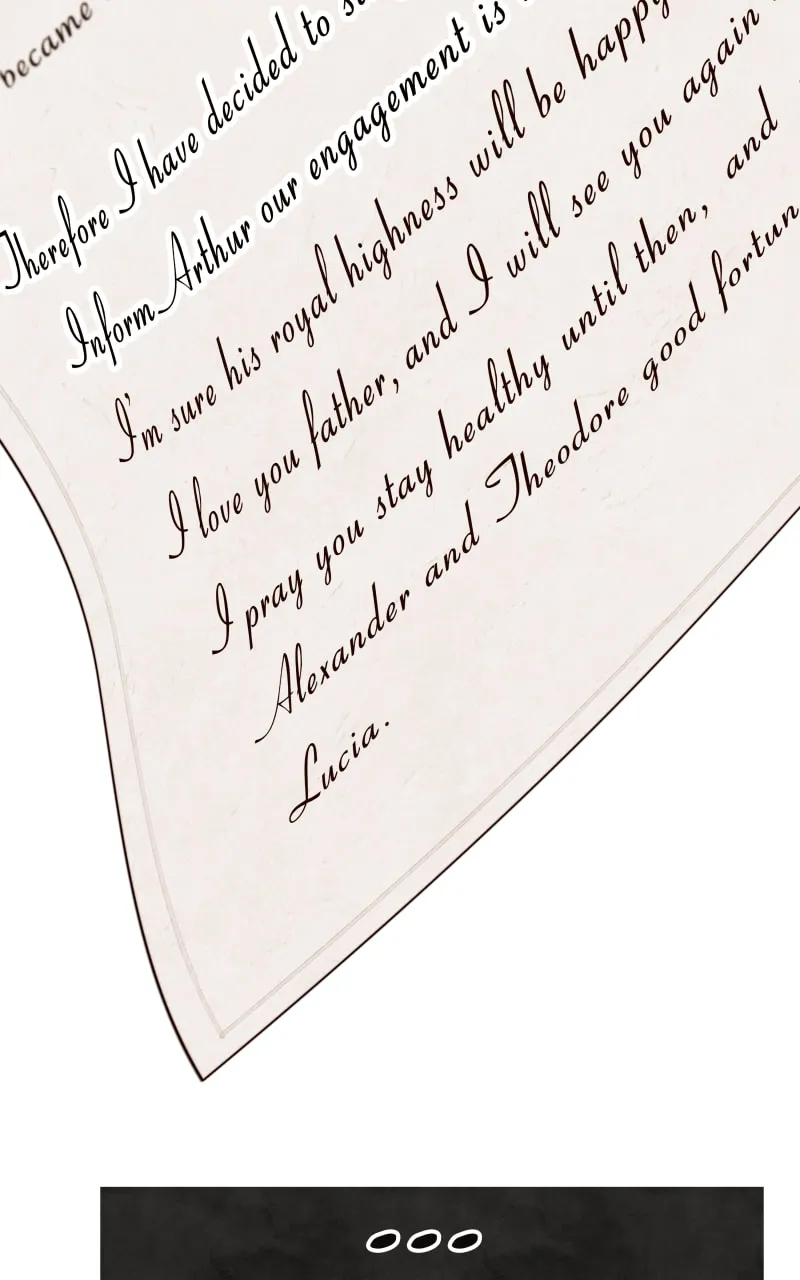 became
Therefore I have decided to
Inform Arthur our engagement is
I'm sure his royal highness will be happy
I love you father, and I will see you again
I pray you stay healthy until then, and
Alexander and Theodore good fortun
Lucia.